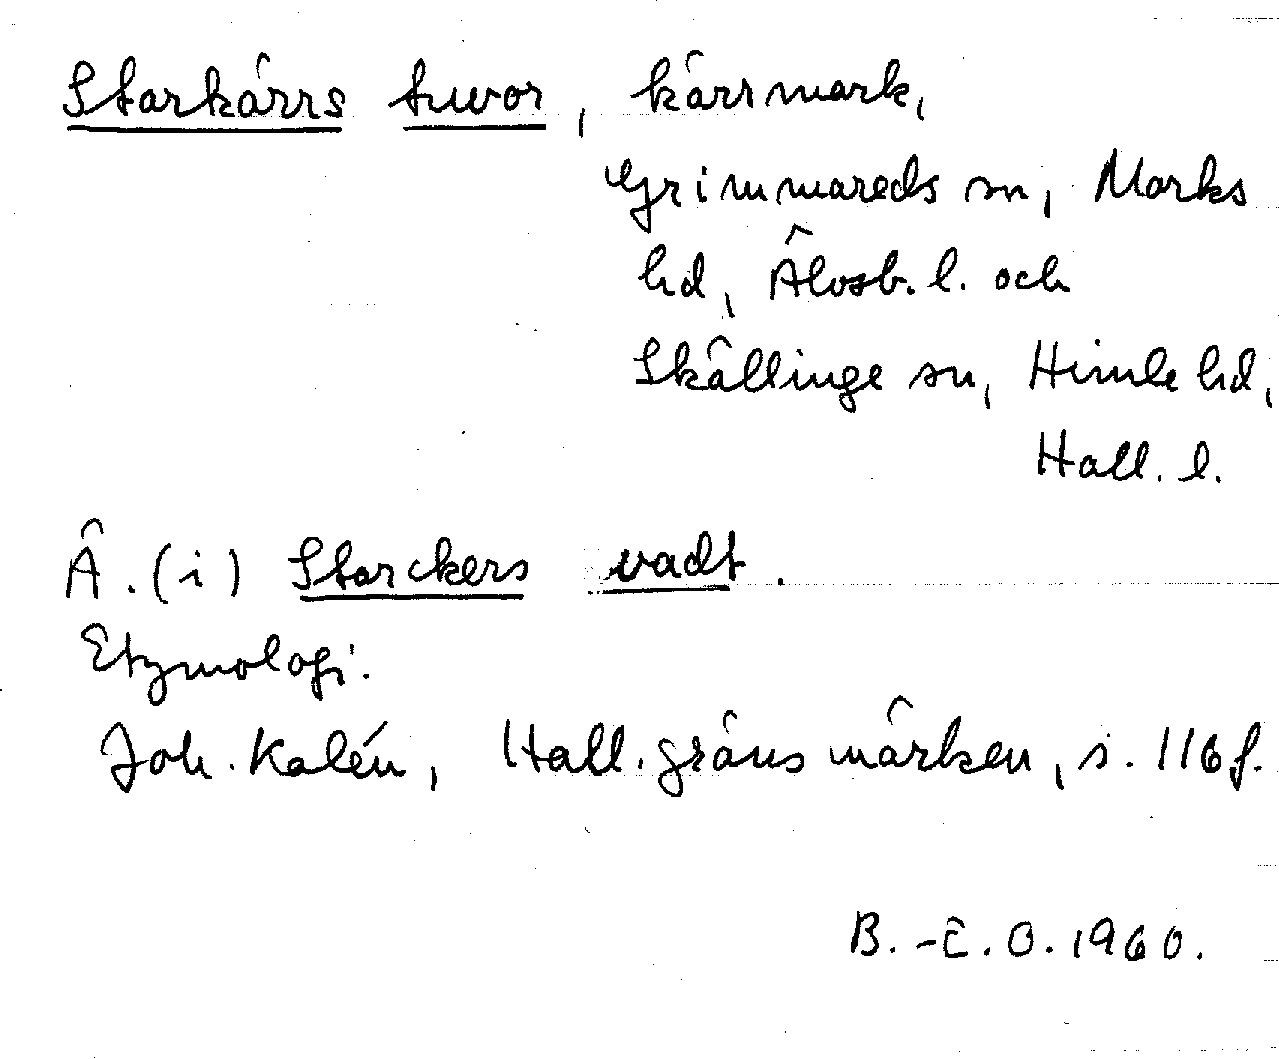 Starkärrs tuvor, kärrmark,
Grimmareds sn, Marks
hd, Älvsb. l. och
Skällinge sn, Himle hd,
Hall. l.
Ä. (i) Starckers vadt.
Etymologi.
Joh. Kalén, Hall. gränsmärken, s. 116 f.
B.-E. O. 1960.